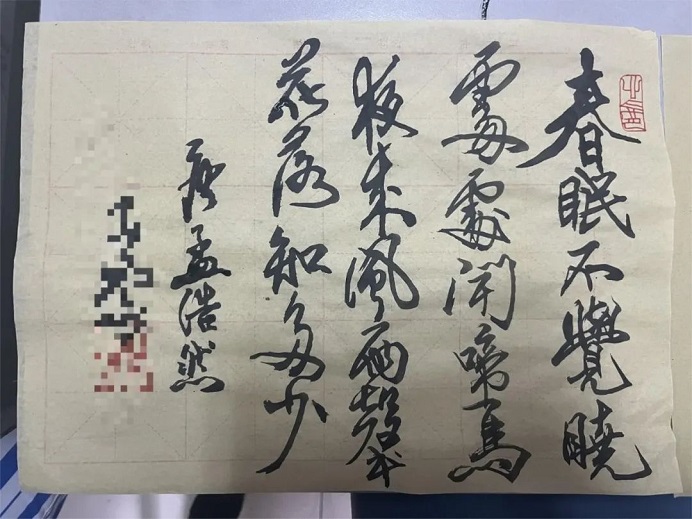 春眠不覺曉
處處聞啼鳥
夜来風雨聲
花落知多少
唐孟浩然